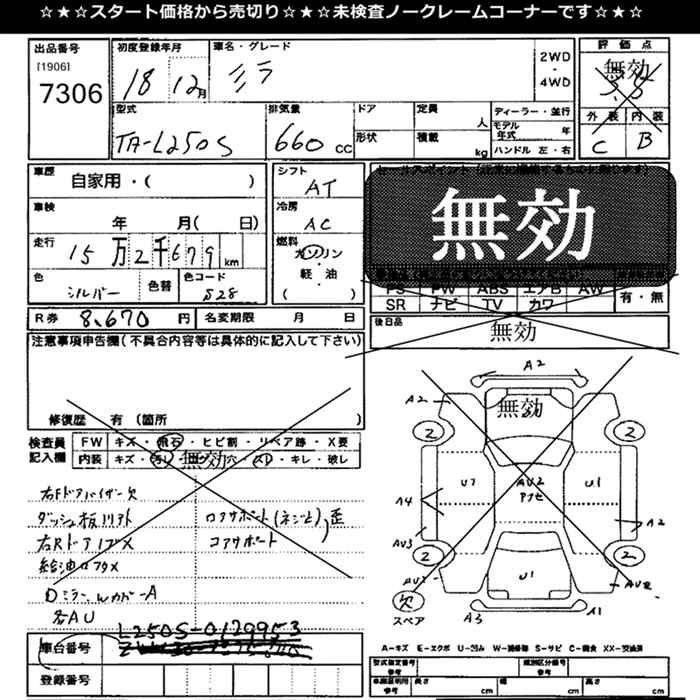 ☆★☆★スタート価格から売切り☆★☆★未検査ノークレームコーナーです☆★☆
出品番号
[1906]
7306
初度登録年月
18 12月
車名・グレード
ミラ
2WD
・
4WD
評価点
無効
3.5
外装 内装
C B
型式
TA-L250S
排気量
660 CC
ドア
形状
定員
人
積載
kg
ディーラー・並行
モデル年式 年
ハンドル 左・右
車歴
自家用・( )
車検
年 月( 日)
走行
15万2千679km
色
シルバー
色替
色コード
S28
シフト
AT
冷房
AC
燃料
ガソリン
・
軽・油
( )
無効
PS PW ABS エアB AW
SR ナビ TV カワ
有・無
R券 8,670 円
名変期限 月 日
後日品
無効
注意事項申告欄(不具合内容等は具体的に記入して下さい)
修復歴 有 (箇所
検査員記入欄
FW キズ・飛石・ヒビ割・リペア跡・X要
内装 キズ・汚レ・コゲ穴・スレ・キレ・破レ
無効
右Fドアバイザー欠
右RドアノブX
各AU
コアサポート
車台番号
L250S-0129953
登録番号
無効
A2
A2
2
2
U7
AU2
U1
A4
A2
AU3
2
2
U1
欠
スペア
A3
A1
A-キズ E-エクボ U-凹み W-補修跡 S-サビ C-腐食 XX-交換済
型式指定番号
参考
類別区分番号
参考
長さ cm
幅 cm
高さ cm